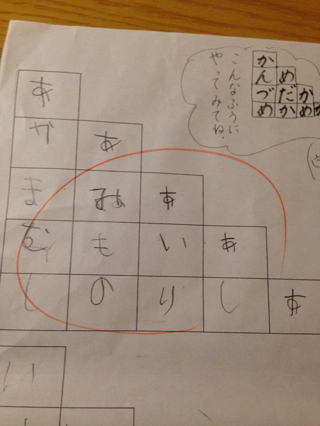 こんなふうに
やってみてね。
かんづめ
めだか
かめ
か
あかまむし
あみもの
あいり
あし
あ
い